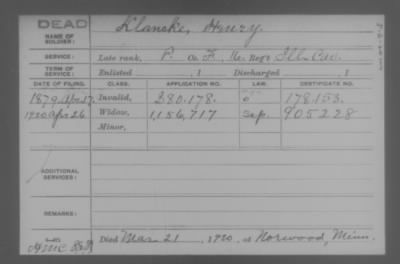 DEAD
NAME OF SOLDIER: Klancke, Henry.
SERVICE: Late rank, P. Co. K, 12. Reg't Ill. Cav.
TERM OF SERVICE: Enlisted , 1 Discharged , 1
DATE OF FILING. CLASS. APPLICATION NO. LAW. CERTIFICATE NO.
1879 Apr. 17. Invalid, 280.178. 178.153.
1920 Apr 26 Widow, 1,156,717 Sep. 905228
Minor,
ADDITIONAL SERVICES:
REMARKS:
Died Mar 21, 1920, at Norwood, Minn.